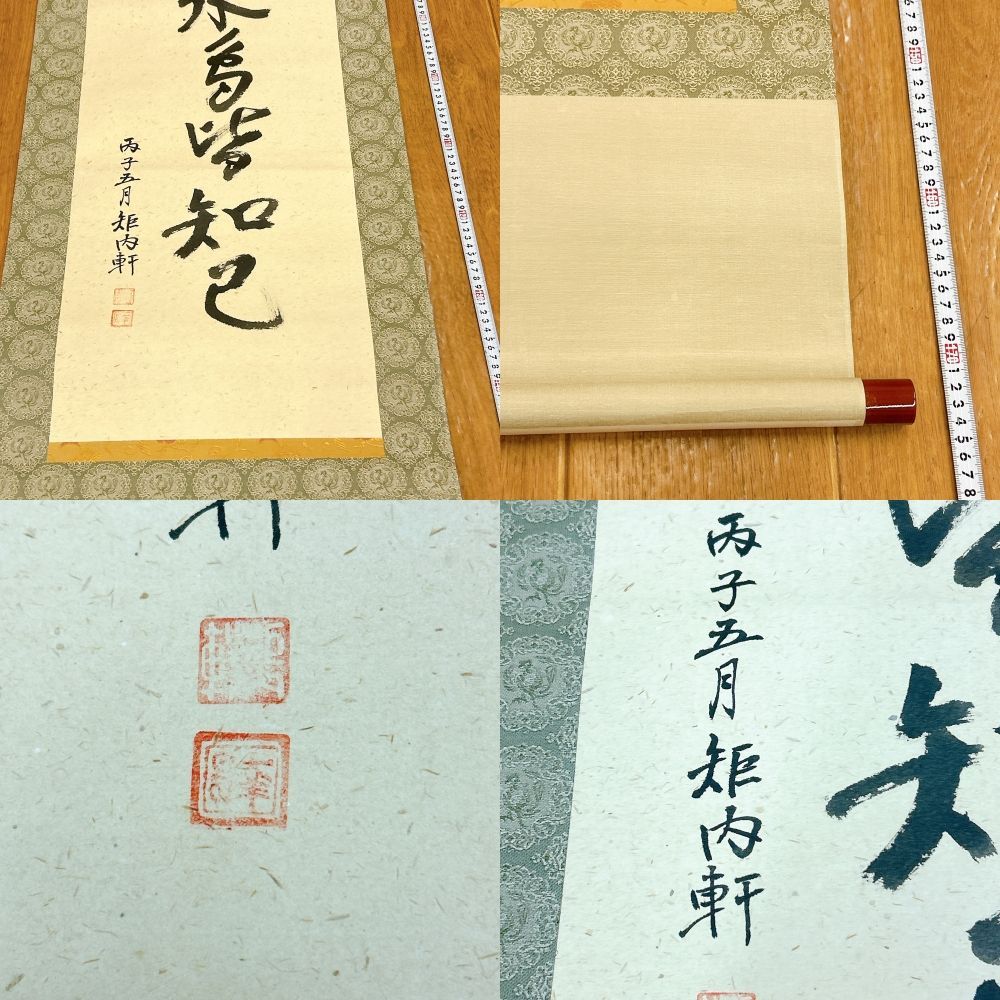 水鳥皆知己
丙子五月 矩内軒
丙子五月 矩内軒
知